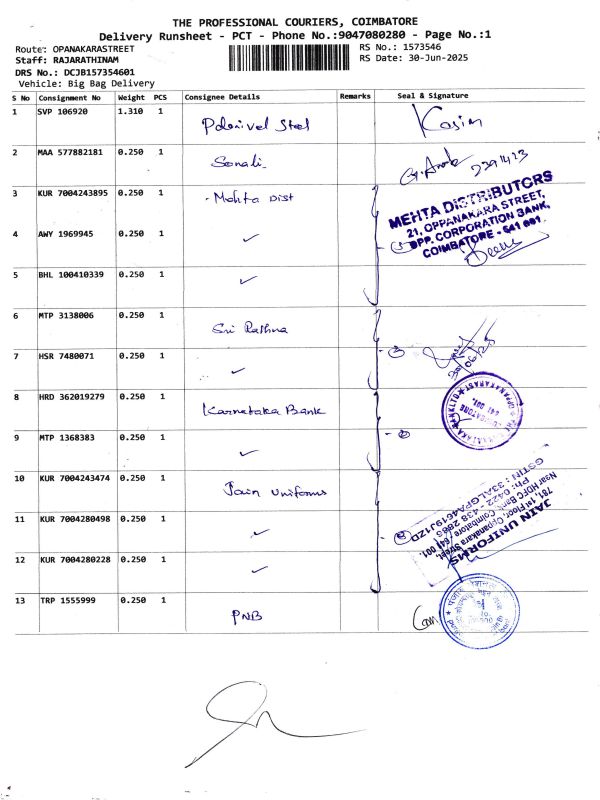 THE PROFESSIONAL COURIERS, COIMBATORE
Delivery Runsheet - PCT - Phone No.:9047080280 - Page No.:1
Route: OPANAKARASTREET RS No.: 1573546
Staff: RAJARATHINAM RS Date: 30-Jun-2025
DRS No.: DCJB157354601
Vehicle: Big Bag Delivery
S No Consignment No Weight PCS Consignee Details Remarks Seal & Signature
1 SVP 106920 1.310 1 Palanivel Steel Kasim
2 MAA 577882181 0.250 1 Sonali 2391423
3 KUR 7004243895 0.250 1 Mehta Dist
MEHTA DISTRIBUTORS
21, OPPANAKARA STREET,
OPP. CORPORATION BANK,
COIMBATORE - 641 001.
4 AWY 1969945 0.250 1 ✓
5 BHL 100410339 0.250 1 ✓
6 MTP 3138006 0.250 1 Sri Rathna
7 HSR 7480071 0.250 1 ✓ 30/06/25
8 HRD 362019279 0.250 1 Karnataka Bank
9 MTP 1368383 0.250 1 ✓
10 KUR 7004243474 0.250 1 Jain Uniforms
JAIN UNIFORMS
781, 1st Floor, Oppanakara Street,
Near HDFC Bank, Coimbatore - 641 001.
GSTIN : 33ALGPA4619J1ZD
11 KUR 7004280498 0.250 1 ✓
12 KUR 7004280228 0.250 1 ✓
13 TRP 1555999 0.250 1 PNB